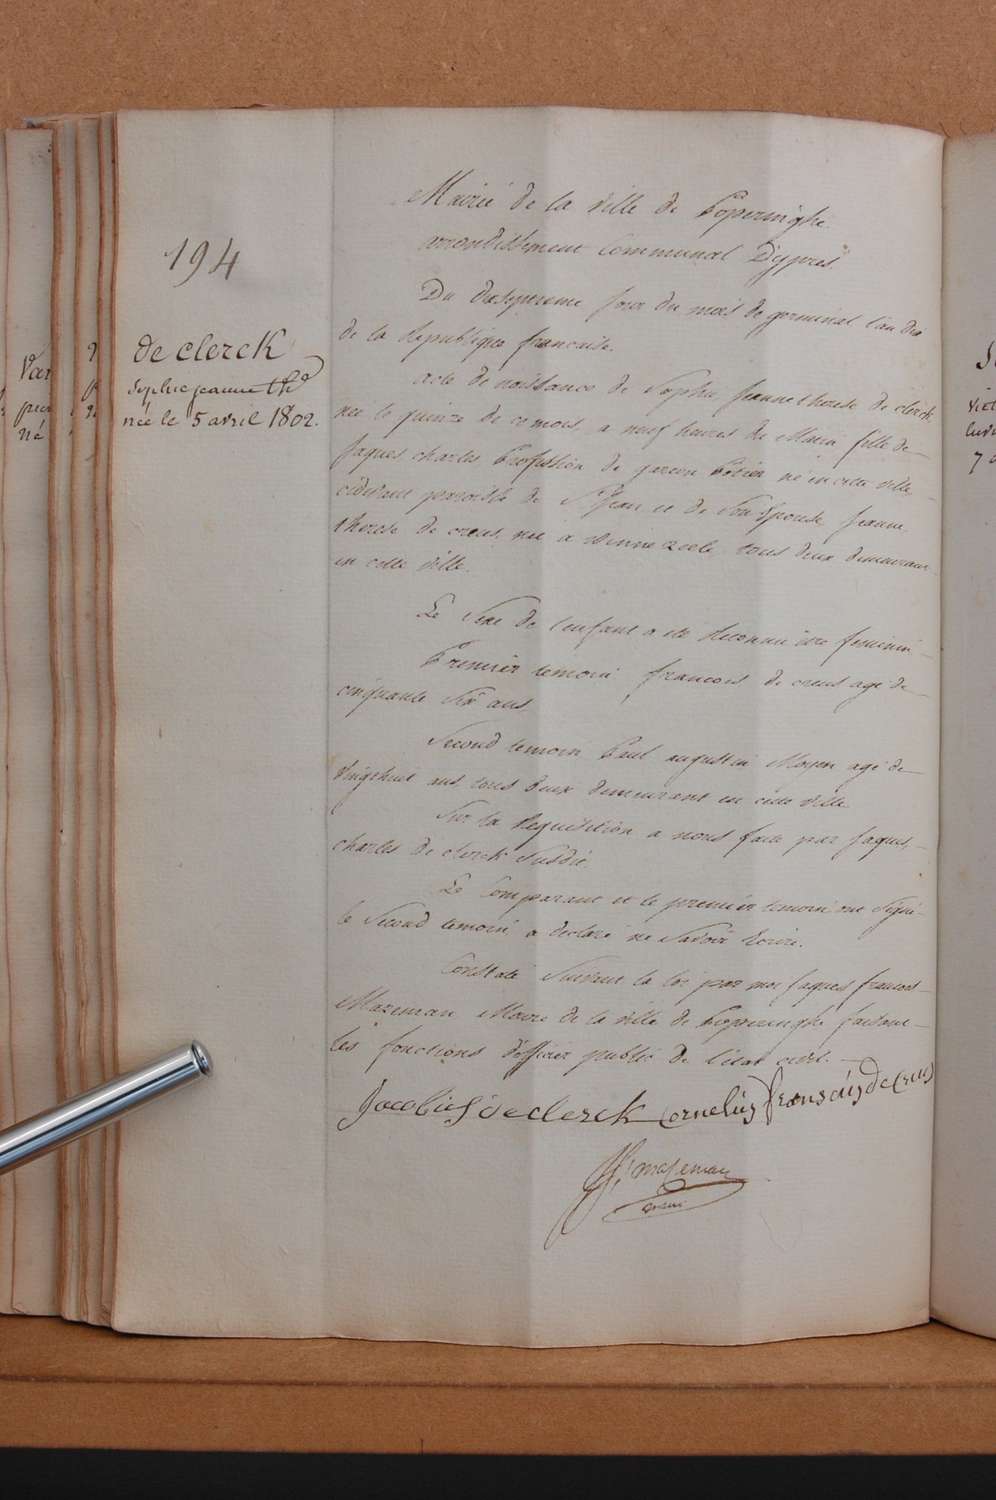 194
de clerck
Sophie jeanne thd
née le 5 avril 1802.
Mairie de la ville de Poperinghe.
arrondissement Communal D'ypres
Du dixseptieme jour du mois de germinal l'an dix
de la Republique francaise.
acte de naissance de Sophie Jeanne therese de clerck
née le quinze de ce mois, a neuf heures du Matin fille de
Jaques charles Profession de garcon Potier né en cette ville
cidevant paroisse de St Jean et de Son Epouse Jeanne
therese de creus, née a Winnezeele tous deux demeurant
en cette ville.
Le Sexe de l'enfant a eté Reconnu être feminin
Premier temoin francois de creus agé de
cinquante Six ans
Second temoin Paul augustin Moyon agé de
vingthuit ans, tous deux demeurant en cette ville
Sur la Requisition a nous faite par Jaques
charles de clerck Susdit.
Le Comparant et le premier temoin ont Signé
le Second temoin a declaré ne Savoir Ecrire.
Constaté Suivant la loi par moi Jaques francois
Mazeman Maire de la ville de Poperinghe faisant
les fonctions d'officier public de l'état civil.
Jacobus de clerck Cornelius fransciis de Creus
mazeman